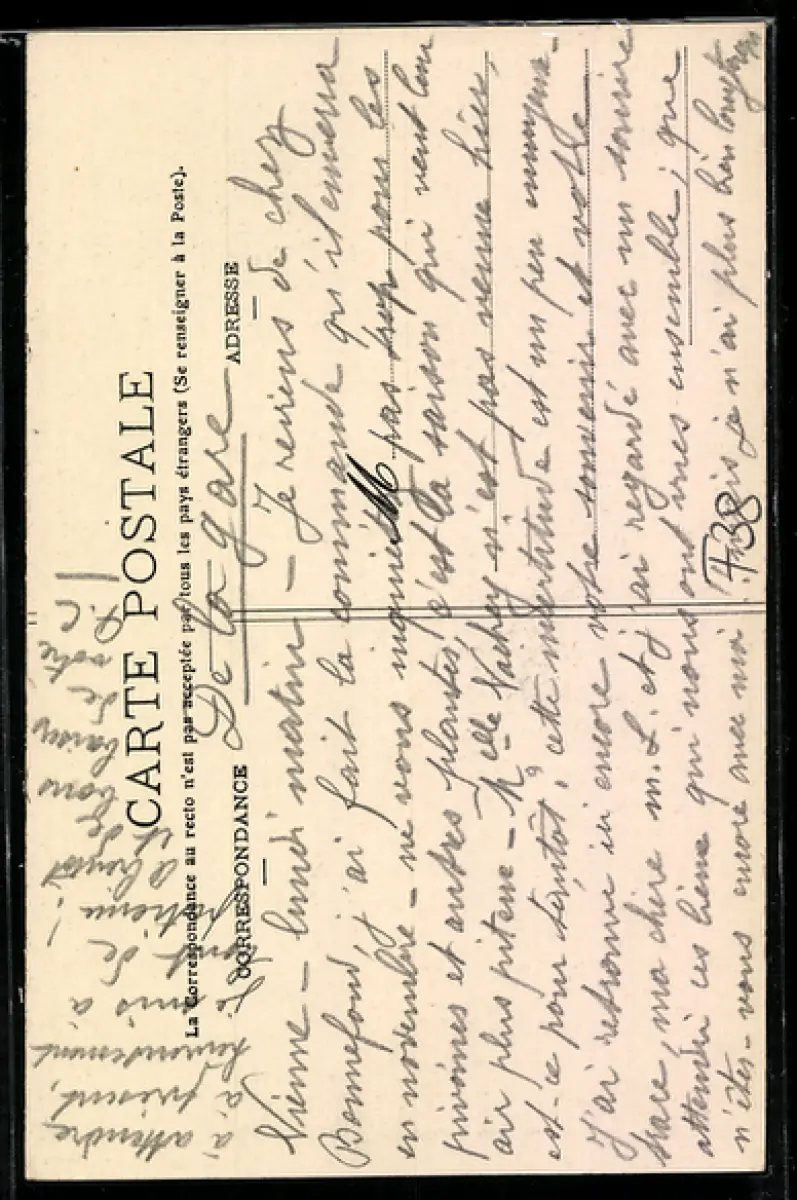 CARTE POSTALE
La Correspondance au recto n'est pas acceptée par tous les pays étrangers (Se renseigner à la Poste).
CORRESPONDANCE
ADRESSE
De la gare
Vienne – lundi matin – Je reviens de chez
Bonnefond, j'ai fait la commande qu'il enverra
en novembre – ne vous inquiétez pas trop pour les
pivoines et autres plantes, c'est la saison qui veut leur
air plus piteux – Melle Vachey n'est pas venue hier,
est-ce pour tantôt? cette incertitude est un peu ennuyeuse –
J'ai retrouvé ici encore votre souvenir et votre
trace, ma chère m. L. et j'ai regardé avec un sourire
attendri ces liens qui nous ont unies ensemble; que
n'êtes-vous encore avec moi! je n'ai plus bien longtemps
à attendre
à présent,
heureusement
je suis à
bout de
patience!
à bientôt
et de
bons
baisers
de
votre
M
F38